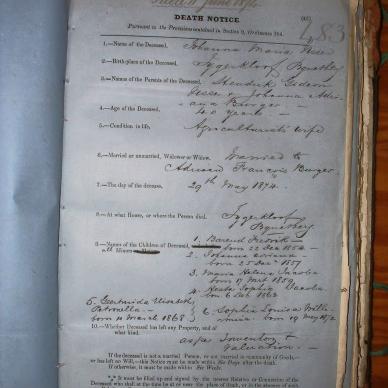 Filed 11 June 1874
DEATH NOTICE
Pursuant to the Provisions contained in Section 9, Ordinance 104.
283
1.—Name of the Deceased, Johanna Maria
2.—Birth place of the Deceased,
3.—Names of the Parents of the Deceased, Hendrik Gideon
& Johanna Adri-
ana Burger
4.—Age of the Deceased, 40 years —
5.—Condition in life, Agriculturist's wife
6.—Married or unmarried, Widower or Widow. Married to
Adriaan Francois Burger
7.—The day of the decease, 29th May 1874.
8.—At what House, or where the Person died.
9.—Names of the Children of Deceased, 1. Barend Fredrik
born 22 Dec 1854 —
2. Johanna Adriana
born 25 Dec 1857
3. Maria Helena Jacoba
born 17 1859
4. Hester Sophia Jacoba
born 6 Feb 1863
5. Gertruida Elisabeth
Petronella —
born 1868
6. Sophia Louisa Wilh-
mina born 19 May 1872
10.—Whether Deceased has left any Property, and of
what kind.
as per Inventory &
Valuation. —
If the deceased is not a married Person, or not married in community of Goods,—
or has left no Will,—this Notice must be made within Six Days after the death.
If otherwise, it must be made within Six Weeks.
*** It must be filled up and signed by the nearest Relative or Connexion of the
Deceased who shall at the time be at or near the place of death, or in the absence of such